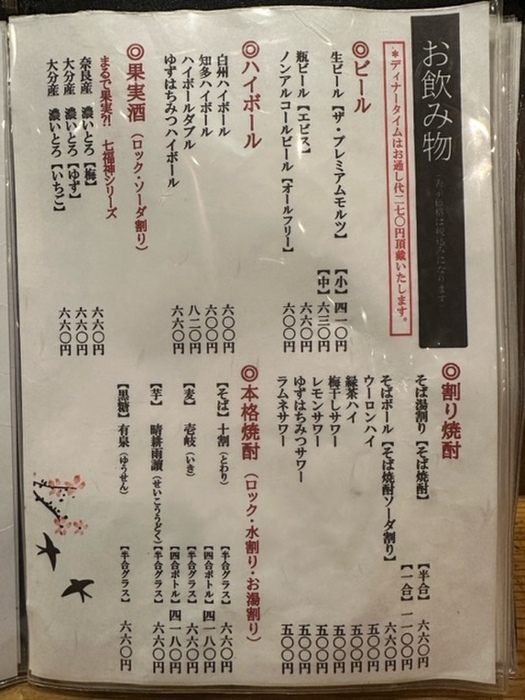 お飲み物
(表示価格は税込みになります)
＊ディナータイムはお通し代二七〇円頂戴いたします。
◎ビール
生ビール【ザ・プレミアムモルツ】
【小】四一〇円
【中】六三〇円
瓶ビール【エビス】 六六〇円
ノンアルコールビール【オールフリー】 六〇〇円
◎ハイボール
白州ハイボール 六〇〇円
知多ハイボール 六〇〇円
ハイボールダブル 八二〇円
ゆずはちみつハイボール 六六〇円
◎果実酒（ロック・ソーダ割り）
まるで果実?! 七福神シリーズ
奈良産 濃いとろ【梅】 六六〇円
大分産 濃いとろ【ゆず】 六六〇円
大分産 濃いとろ【いちご】 六六〇円
◎割り焼酎
そば湯割り【そば焼酎】
【半合】 六六〇円
【一合】 一一〇〇円
そばボール【そば焼酎ソーダ割り】 六六〇円
ウーロンハイ 五〇〇円
緑茶ハイ 五〇〇円
梅干しサワー 五〇〇円
レモンサワー 五〇〇円
ゆずはちみつサワー 五〇〇円
ラムネサワー 五〇〇円
◎本格焼酎（ロック・水割り・お湯割り）
【そば】十割（とわり） 【半合グラス】 六六〇円
【四合ボトル】四一八〇円
【麦】 壱岐（いき） 【半合グラス】 六六〇円
【四合ボトル】四一八〇円
【芋】 晴耕雨讀（せいこううどく）【半合グラス】 六六〇円
【黒糖】有泉（ゆうせん） 【半合グラス】 六六〇円